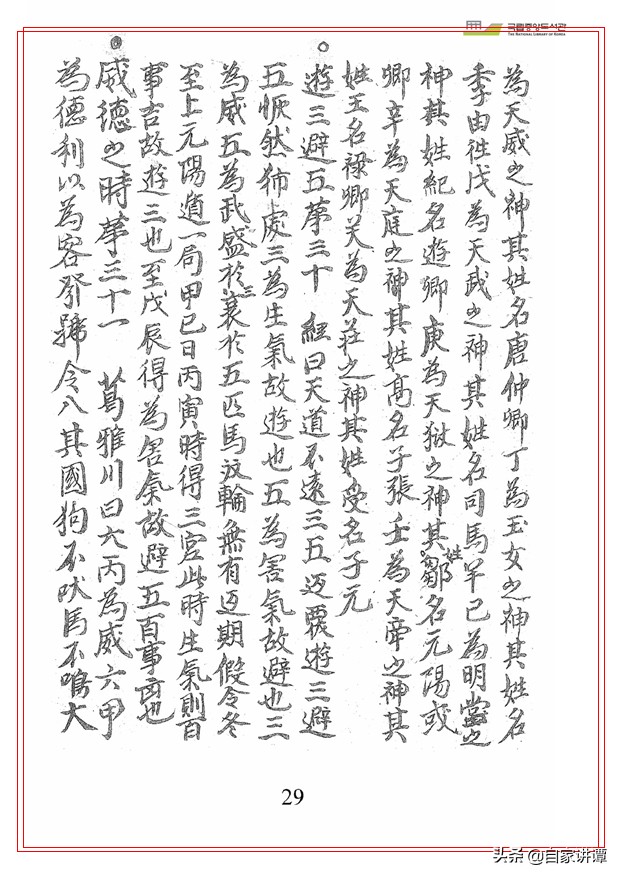 국립중앙도서관
THE NATIONAL LIBRARY OF KOREA
為天威之神其姓名唐仲卿丁為玉女之神其姓名
季由徃戊為天武之神其姓名司馬羊己為明堂之
神其姓紀名遊卿庚為天獄之神其姓鄒名元陽或
卿辛為天庭之神其姓高名子張壬為天帝之神其
姓王名祿卿关為天莊之神其姓受名子元
遊三避五苐三十 經曰天道不遠三五迈覆遊三避
五恢然狆處三為生氣故遊也五為害氣故避也三
為威五為武盛於衰於五匹馬汳輪無有迈期假令冬
至上元陽遁一局甲己日丙寅時得三宮此時生氣則百
事吉故遊三也至戊辰得為害氣故避五百事凶也
威德之時苐三十一 葛雅川曰六丙為威六甲
為德利以為客發號令八其國狗不吠馬不鳴大
29
头条 @自家讲谭